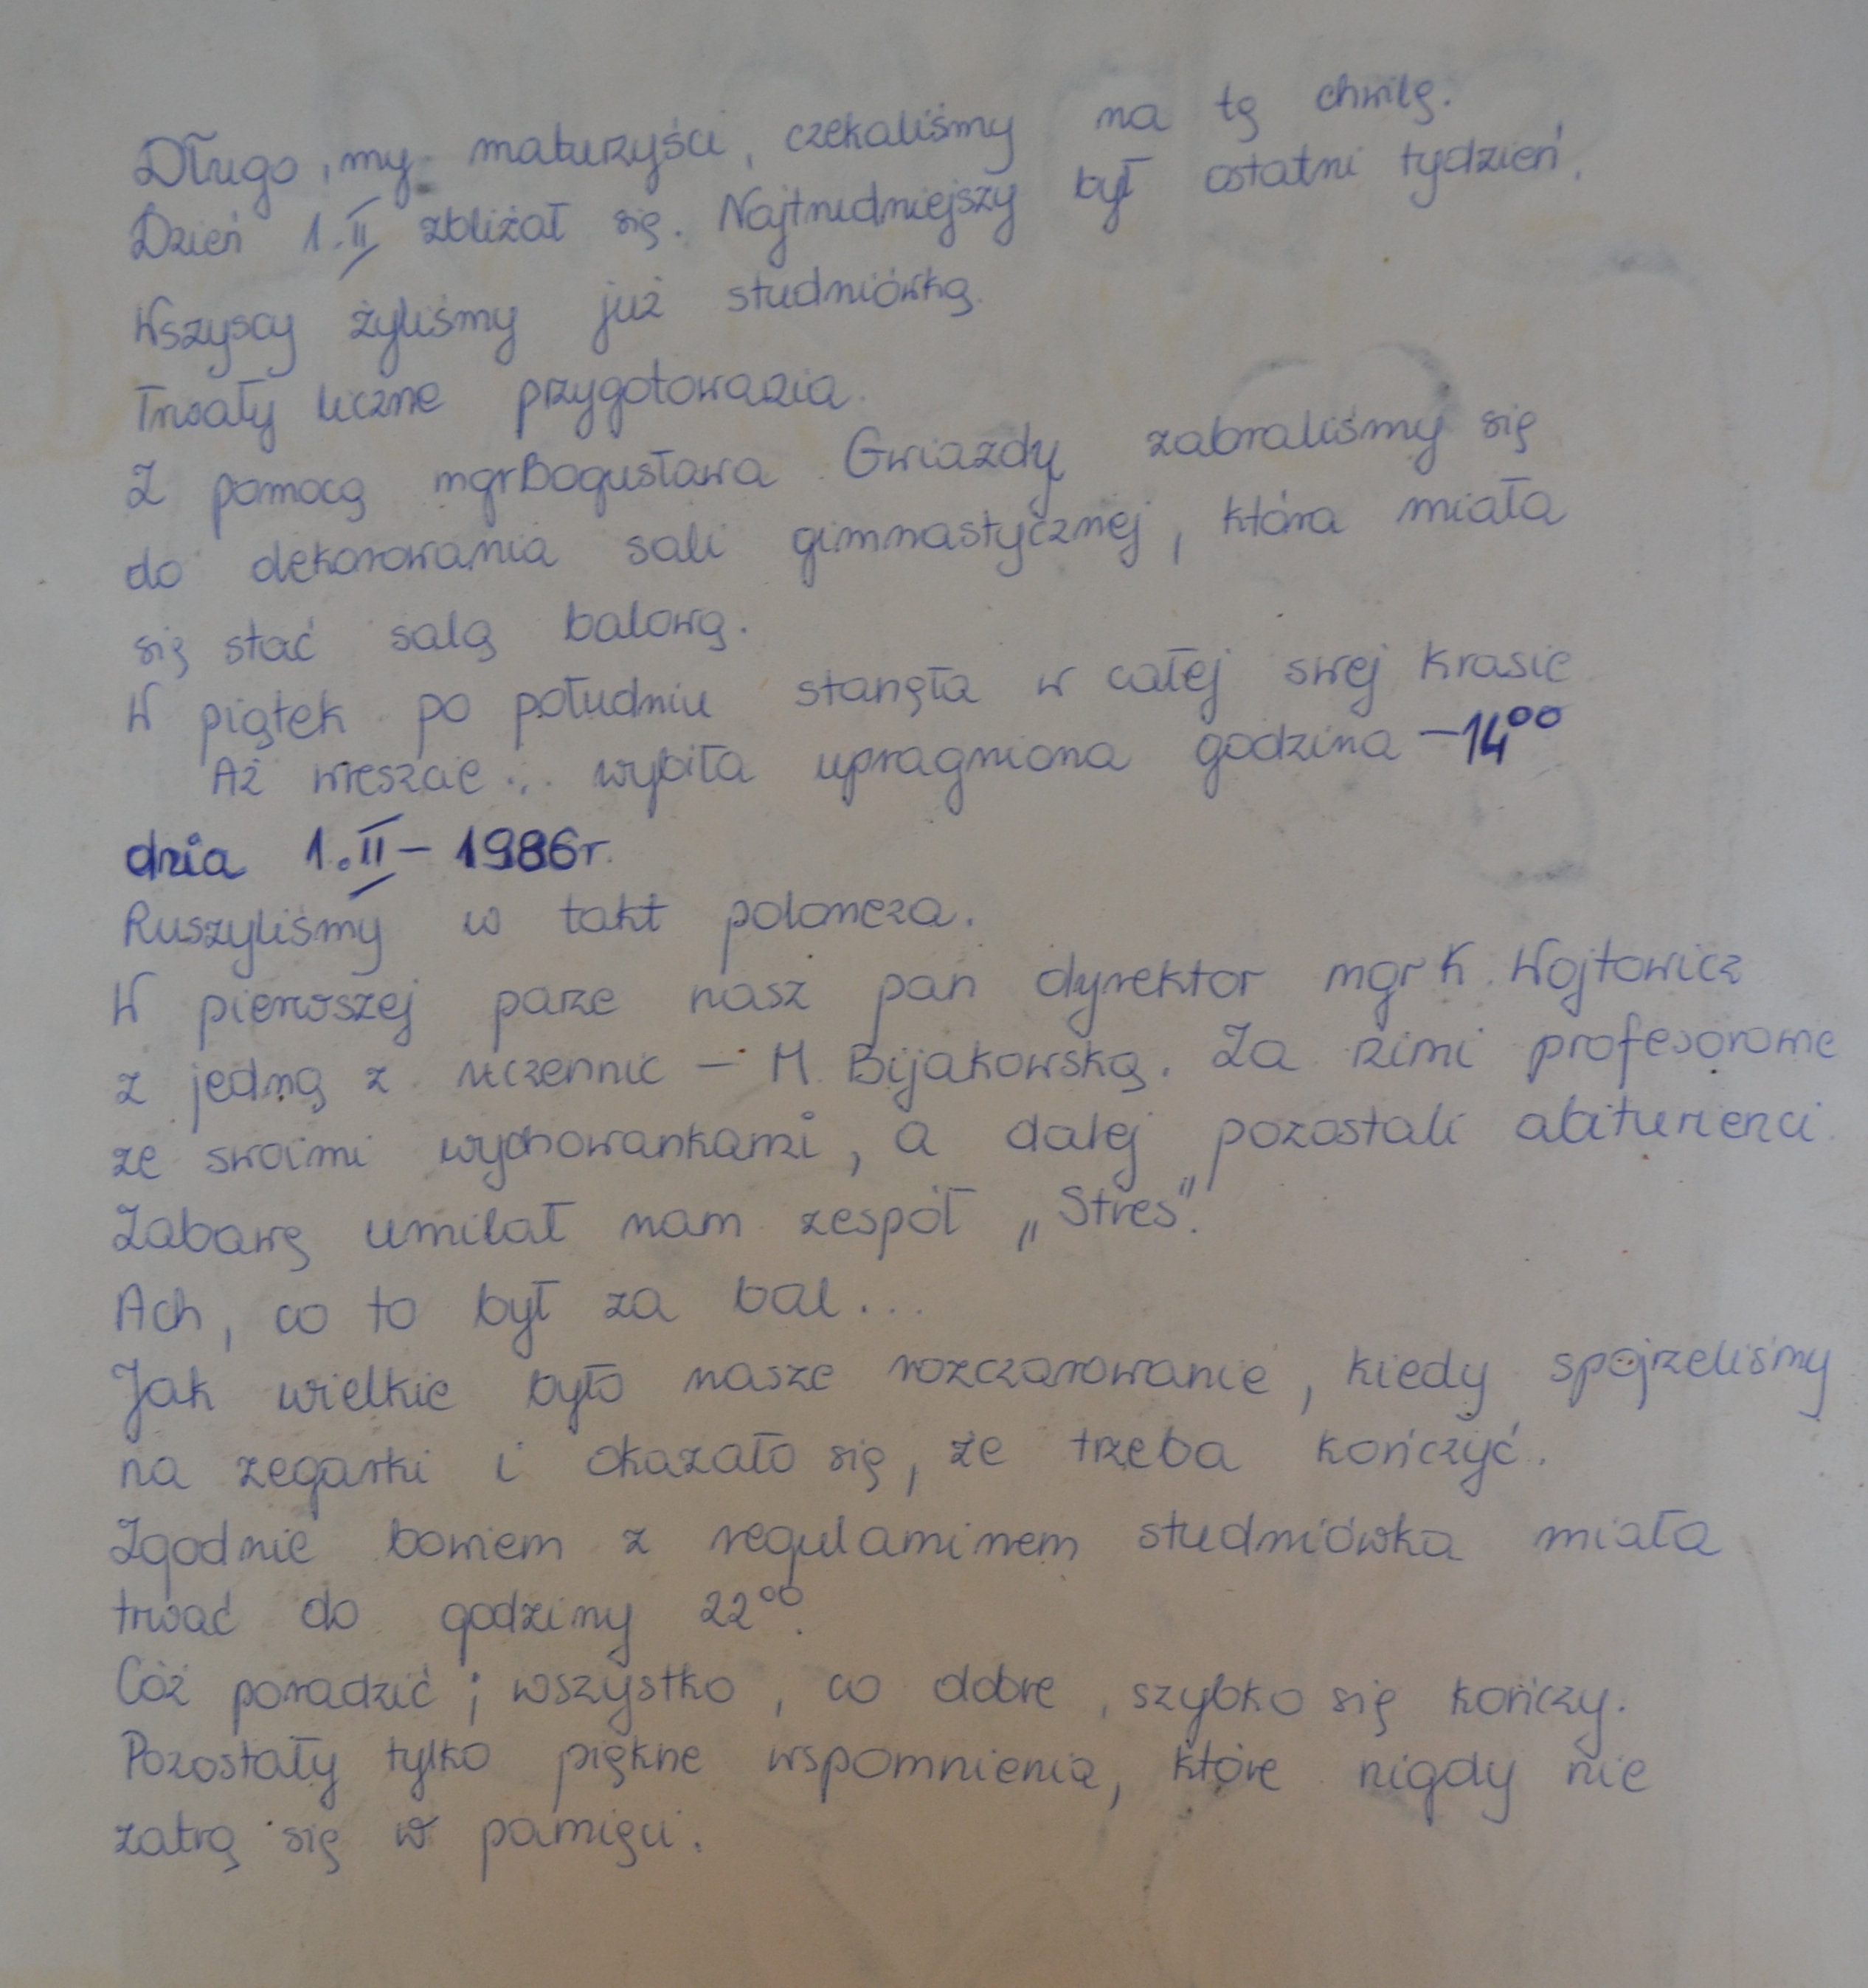 Długo, my maturzyści, czekaliśmy na tę chwilę.
Dzień 1.II zbliżał się. Najtrudniejszy był ostatni tydzień.
Wszyscy żyliśmy już studniówką.
Trwały liczne przygotowania.
Z pomocą mgr Bogusława Gwiazdy zabraliśmy się
do dekorowania sali gimnastycznej, która miała
się stać salą balową.
W piątek po południu stanęła w całej swej krasie
Aż wreszcie... wybiła upragniona godzina – 14⁰⁰
dnia 1.II – 1986r.
Ruszyliśmy w takt poloneza.
W pierwszej parze nasz pan dyrektor mgr K. Wojtowicz
z jedną z uczennic – M. Bijakowską. Za nimi profesorowie
ze swoimi wychowankami, a dalej pozostali abiturienci.
Zabawę umilał nam zespół „Stres".
Ach, co to był za bal...
Jak wielkie było nasze rozczarowanie, kiedy spojrzeliśmy
na zegarki i okazało się, że trzeba kończyć.
Zgodnie bowiem z regulaminem studniówka miała
trwać do godziny 22⁰⁰.
Cóż poradzić; wszystko, co dobre, szybko się kończy.
Pozostały tylko piękne wspomnienia, które nigdy nie
zatrą się w pamięci.